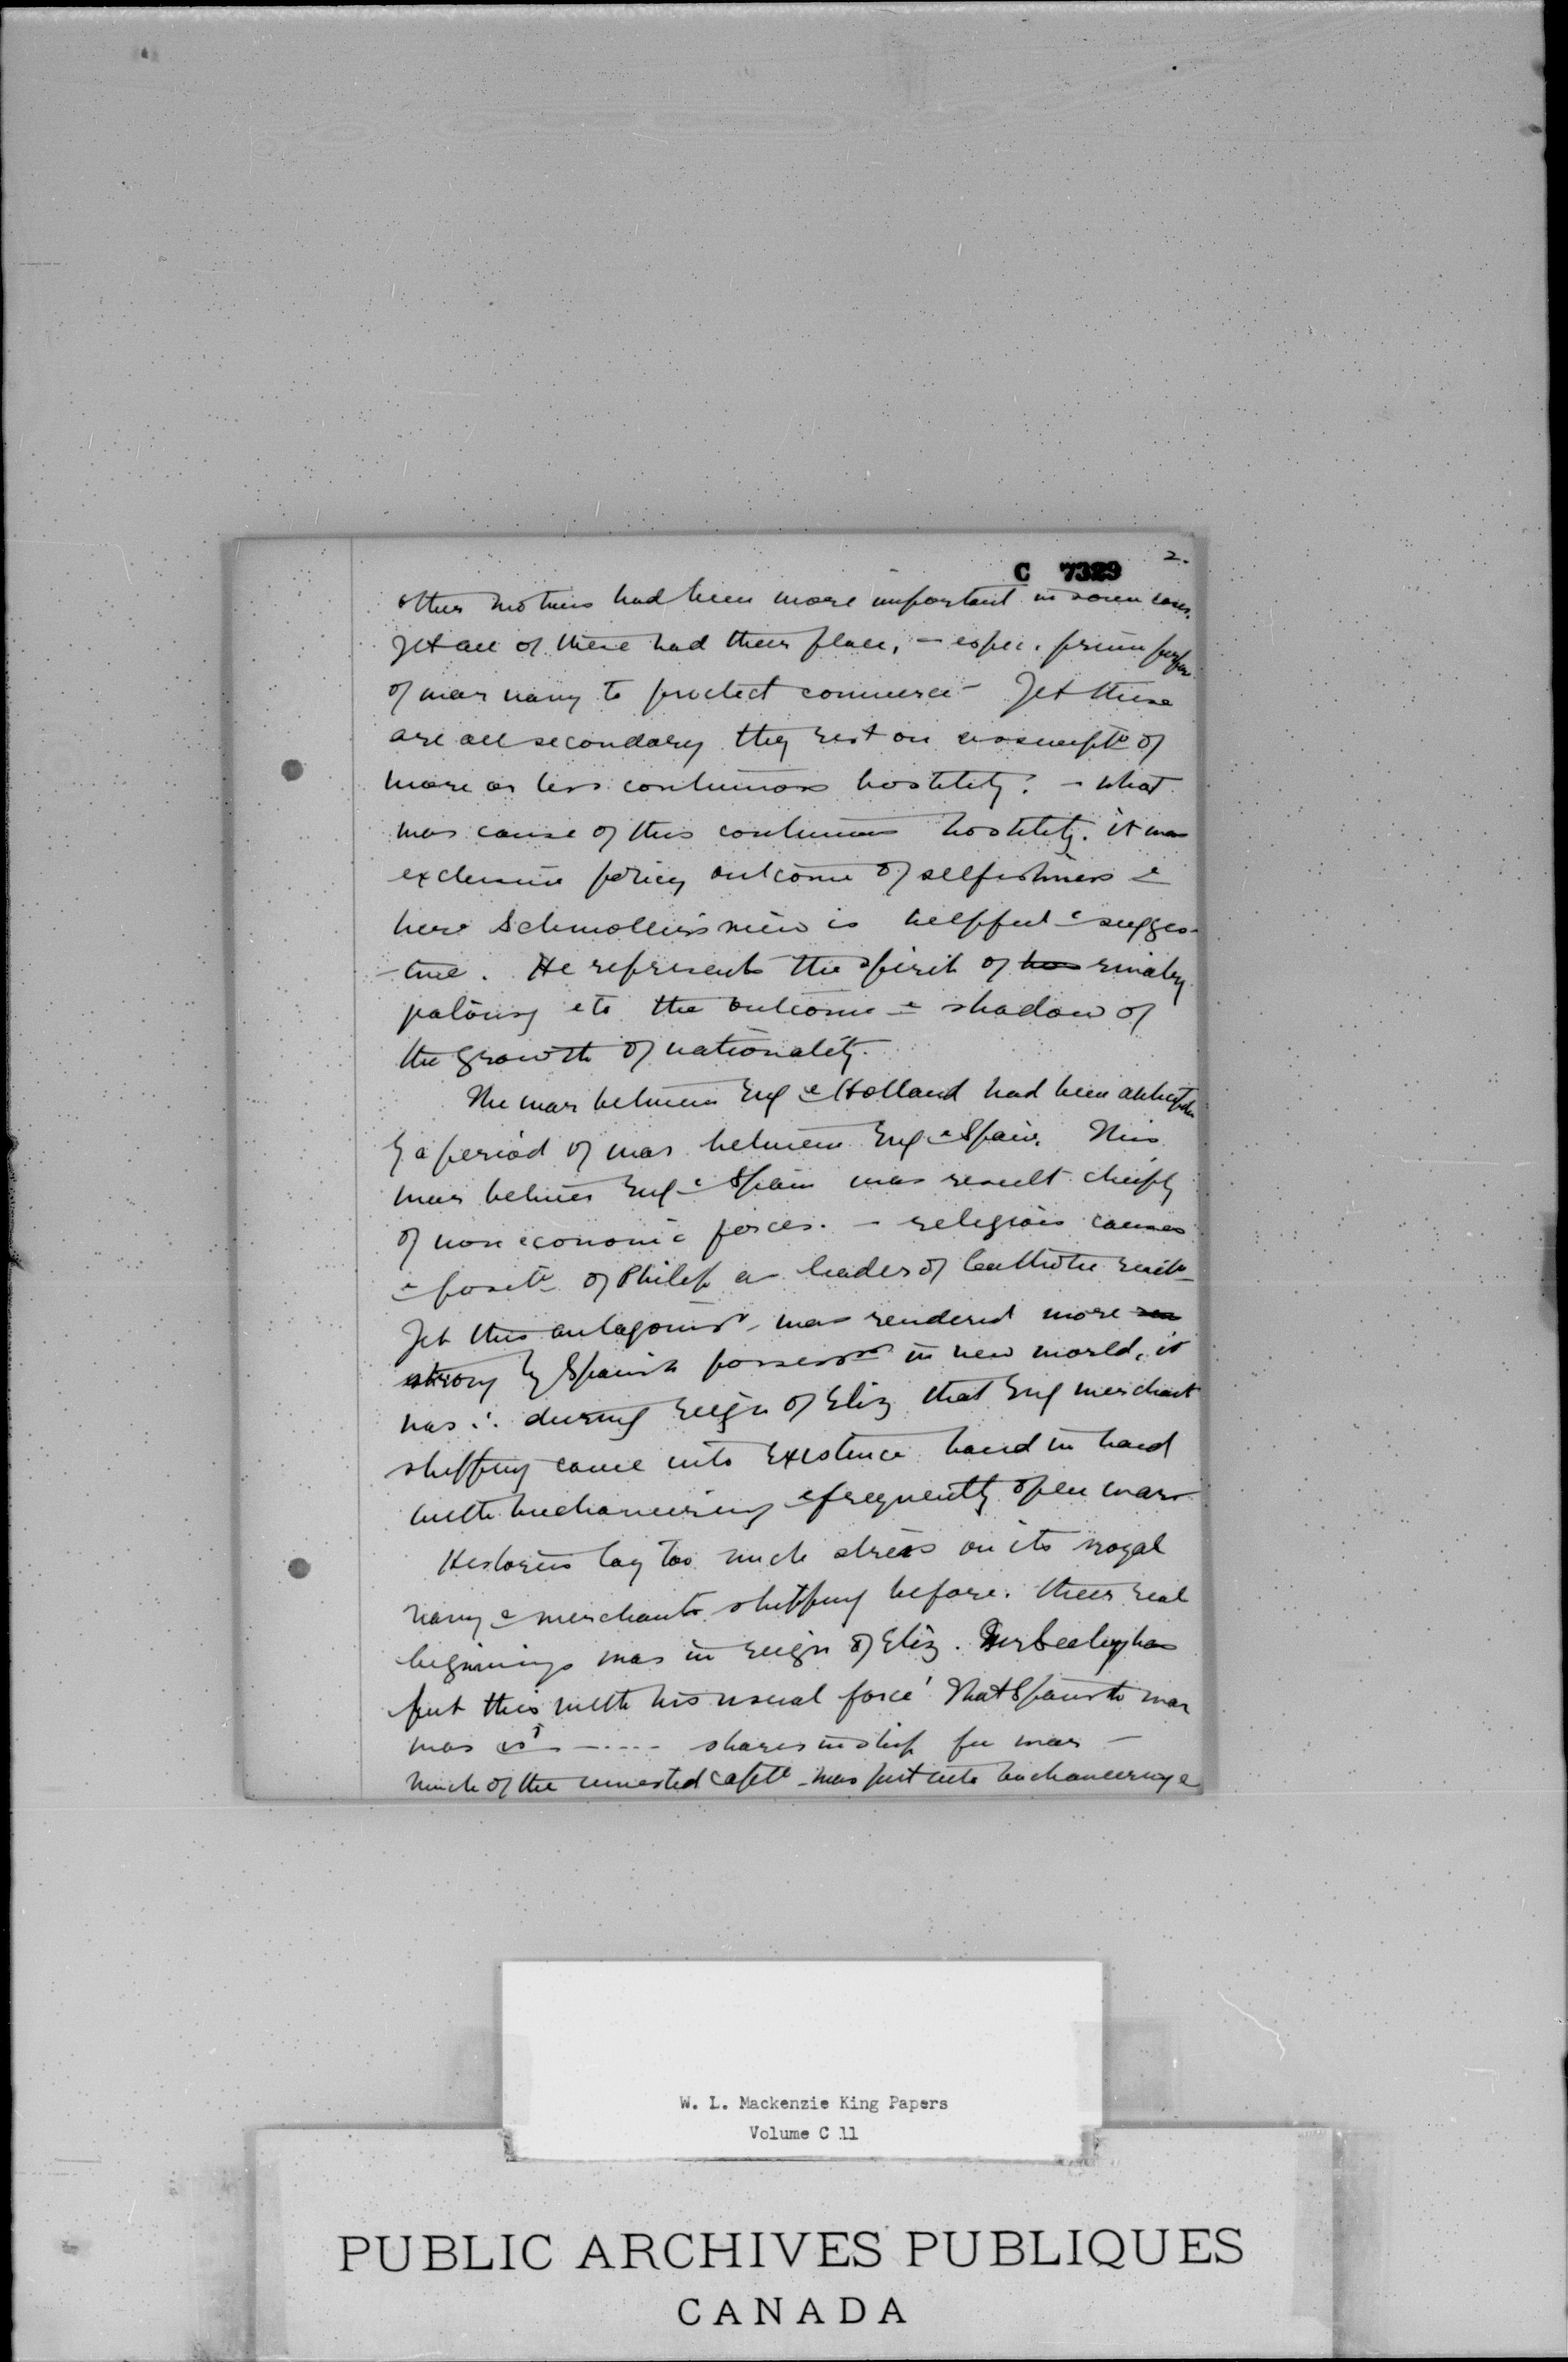 2.
C 7329
other motives had been more important in some cases.
Yet all of these had their place, - espec. prime
of war navy to protect commerce - Yet these
are all secondary they rest on assumptn of
more or less continuous hostility: - what
was cause of this continuous hostility. it was
exclusive policy outcome of selfishness &
here Schmoller's view is helpful & sugges-
-tive. He represents the spirit of rivalry
jealousy etc the outcome & shadow of
the growth of nationality.
The war between Eng & Holland had been
by a period of war between Eng & Spain. This
war between Eng & Spain was result chiefly
of non economic forces. - religious causes
& positn of Philip as leader of Catholic
Yet this antagonism was rendered more
strong by Spanish possessns in new world, it
was ∴ during reign of Eliz that Eng merchant
shipping came into existence hand in hand
with buchaneering & frequently open war
Histories lay too much stress on its royal
navy & merchants shipping before. their real
beginnings was in reign of Eliz. Seeley has
put this with his usual force' That Spanish war
was ----- shares in ship for war -
Much of the invested captl was put into buchaneering &
W. L. Mackenzie King Papers
Volume C 11
PUBLIC ARCHIVES PUBLIQUES
CANADA